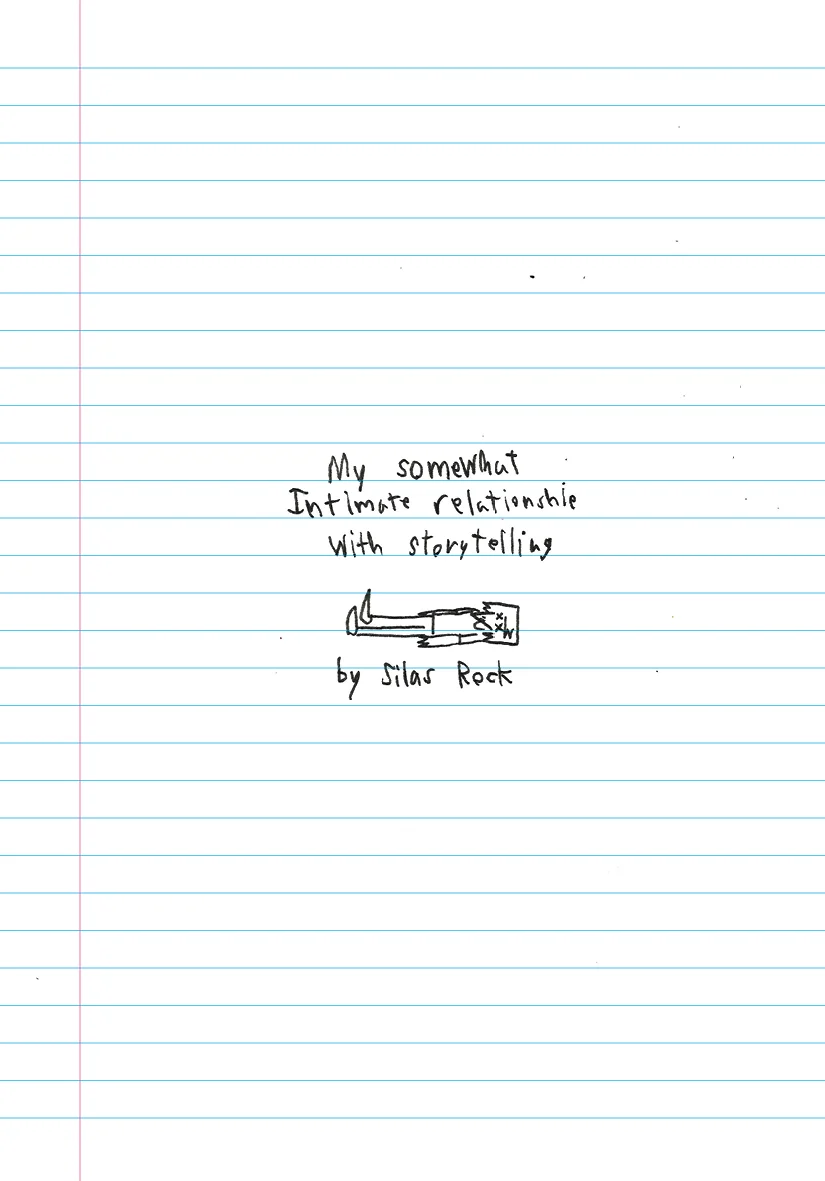 My somewhat
Intimate relationship
with storytelling
by Silas Rock